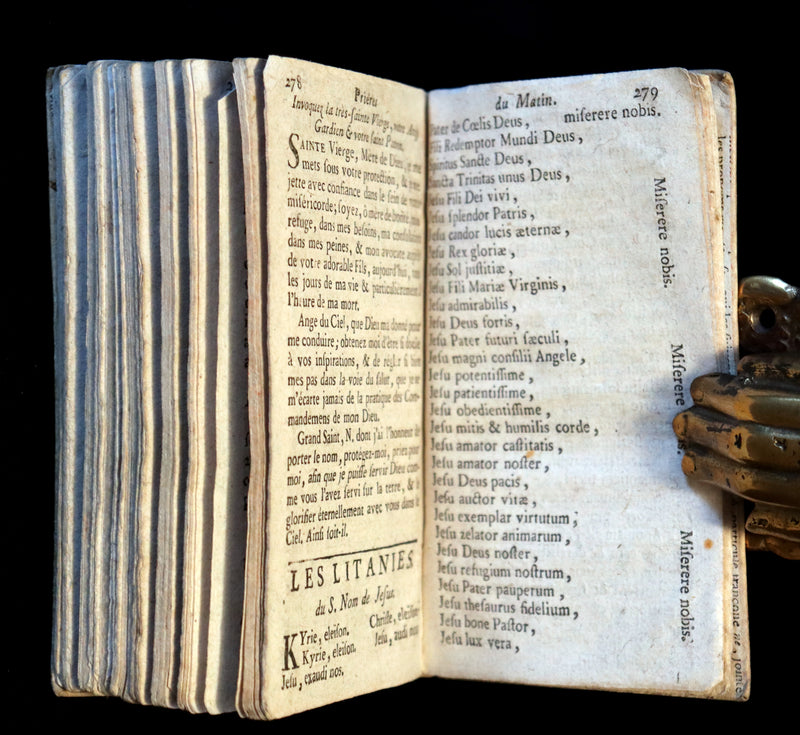 278
Prieres
Invoquez la très-sainte Vierge, votre Ange
Gardien & votre saint Patron.
SAINTE Vierge, Mere de Dieu, je me
mets sous votre protection, & je me
jette avec confiance dans le sein de votre
miséricorde; soyez, ô mere de bonté, mon
refuge, dans mes besoins, ma consolation
dans mes peines, & mon avocate auprès
de votre adorable Fils, aujourd'hui, tous
les jours de ma vie & particuliérement à
l'heure de ma mort.
Ange du Ciel, que Dieu m'a donné pour
me conduire; obtenez moi d'être si docile
à vos inspirations, & de régler si bien
mes pas dans la voie du salut, que je ne
m'écarte jamais de la pratique des Com-
mandemens de mon Dieu.
Grand Saint, N, dont j'ai l'honneur de
porter le nom, protégez-moi, priez pour
moi, afin que je puisse servir Dieu com-
me vous l'avez servi sur la terre, & le
glorifier éternellement avec vous dans le
Ciel. Ainsi soit-il.
LES LITANIES
du S. Nom de Jesus.
KYrie, eleison. Christe, eleison.
Kyrie, eleison. Jesu, audi nos.
Jesu, exaudi nos.
du Matin. 279
Pater de Cœlis Deus, miserere nobis.
Fili Redemptor Mundi Deus,
Spiritus Sancte Deus,
Sancta Trinitas unus Deus,
Jesu Fili Dei vivi,
Jesu splendor Patris,
Jesu candor lucis æternæ,
Jesu Rex gloriæ,
Jesu Sol justitiæ,
Jesu Fili Mariæ Virginis,
Jesu admirabilis,
Jesu Deus fortis,
Jesu Pater futuri sæculi,
Jesu magni consilii Angele,
Jesu potentissime,
Jesu patientissime,
Jesu obedientissime,
Jesu mitis & humilis corde,
Jesu amator castitatis,
Jesu amator noster,
Jesu Deus pacis,
Jesu auctor vitæ,
Jesu exemplar virtutum;
Jesu zelator animarum,
Jesu Deus noster,
Jesu refugium nostrum,
Jesu Pater pauperum,
Jesu thesaurus fidelium,
Jesu bone Pastor,
Jesu lux vera,
Miserere nobis.
Miserere
Miserere nobis.